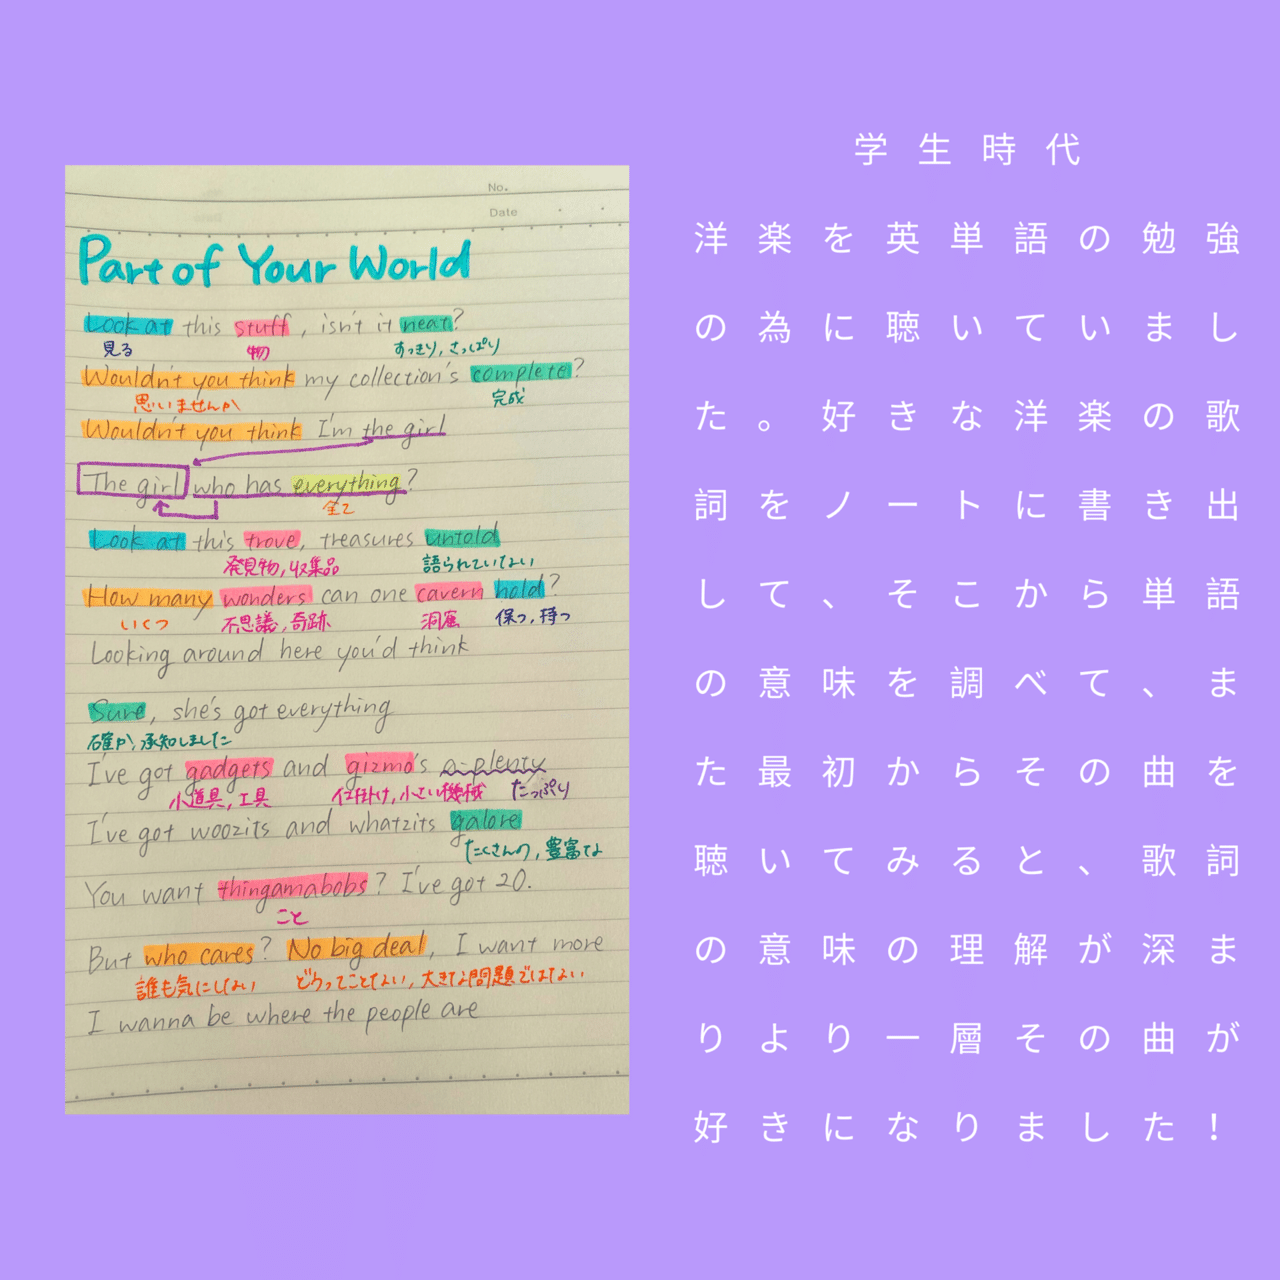 No.
Date
Part of Your World
Look at this stuff, isn't it neat?
見る 物 すっきり,さっぱり
Wouldn't you think my collection's complete?
思いませんか 完成
Wouldn't you think I'm the girl
The girl who has everything?
全て
Look at this trove, treasures untold
発見物,収集品 語られていない
How many wonders can one cavern hold?
いくつ 不思議,奇跡 洞窟 保つ,持つ
Looking around here you'd think
Sure, she's got everything
確か,承知しました
I've got gadgets and gizmo's a-plenty
小道具,工具 仕掛け,小さい機械 たっぷり
I've got woozits and whatzits galore
たくさんの,豊富な
You want thingamabobs? I've got 20.
こと
But who cares? No big deal, I want more
誰も気にしない どうってことない,大きな問題ではない
I wanna be where the people are
学生時代
洋楽を英単語の勉強
の為に聴いていまし
た。好きな洋楽の歌
詞をノートに書き出
して、そこから単語
の意味を調べて、ま
た最初からその曲を
聴いてみると、歌詞
の意味の理解が深ま
りより一層その曲が
好きになりました！